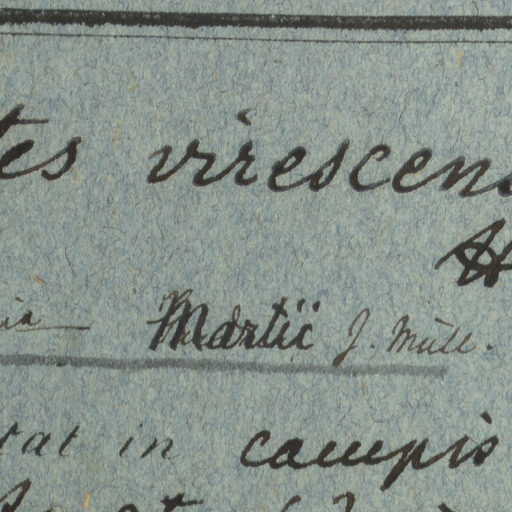 tes virescens
H
ia Martii J. Müll.
tat in campis